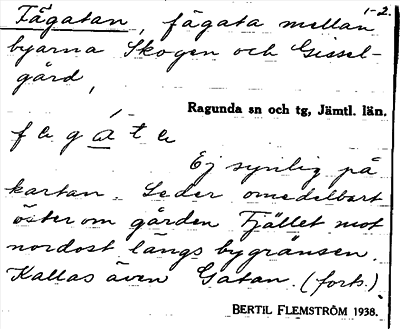 1-2.
Fägatan, fägata mellan
byarna Skogen och Gissel-
gård,
Ragunda sn och tg, Jämtl. län.
Ej synlig på
kartan. Leder omedelbart
öster om gården Fjället mot
nordost längs bygränsen.
Kallas även Gatan. (forts.)
BERTIL FLEMSTRÖM 1938.